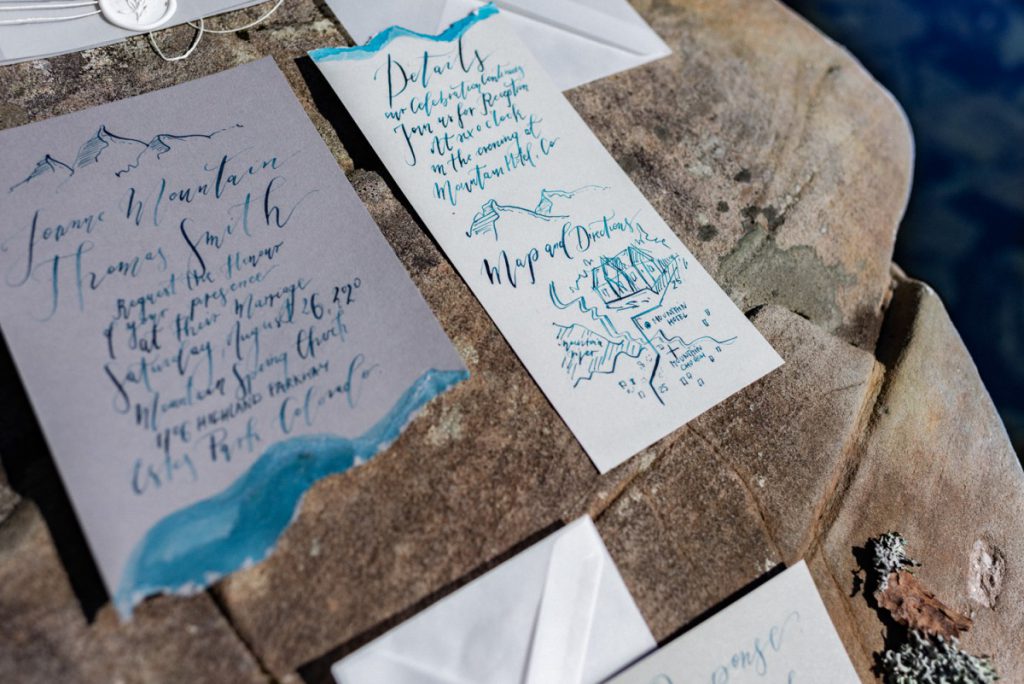 Joanne Mountain
Thomas Smith
Request the Honour
of your presence
at their Marriage
Saturday, August 26, 2020
Mountain Spring Church
HIGHLAND PARKWAY
Estes Park Colorado
Details
our Celebration continues
Join us for Reception
At six o'clock
in the evening at
Mountain Hotel, Co
Map and Directions
MOUNTAIN
HOTEL
mountain
river
MOUNTAIN
CHURCH
25
25
Response